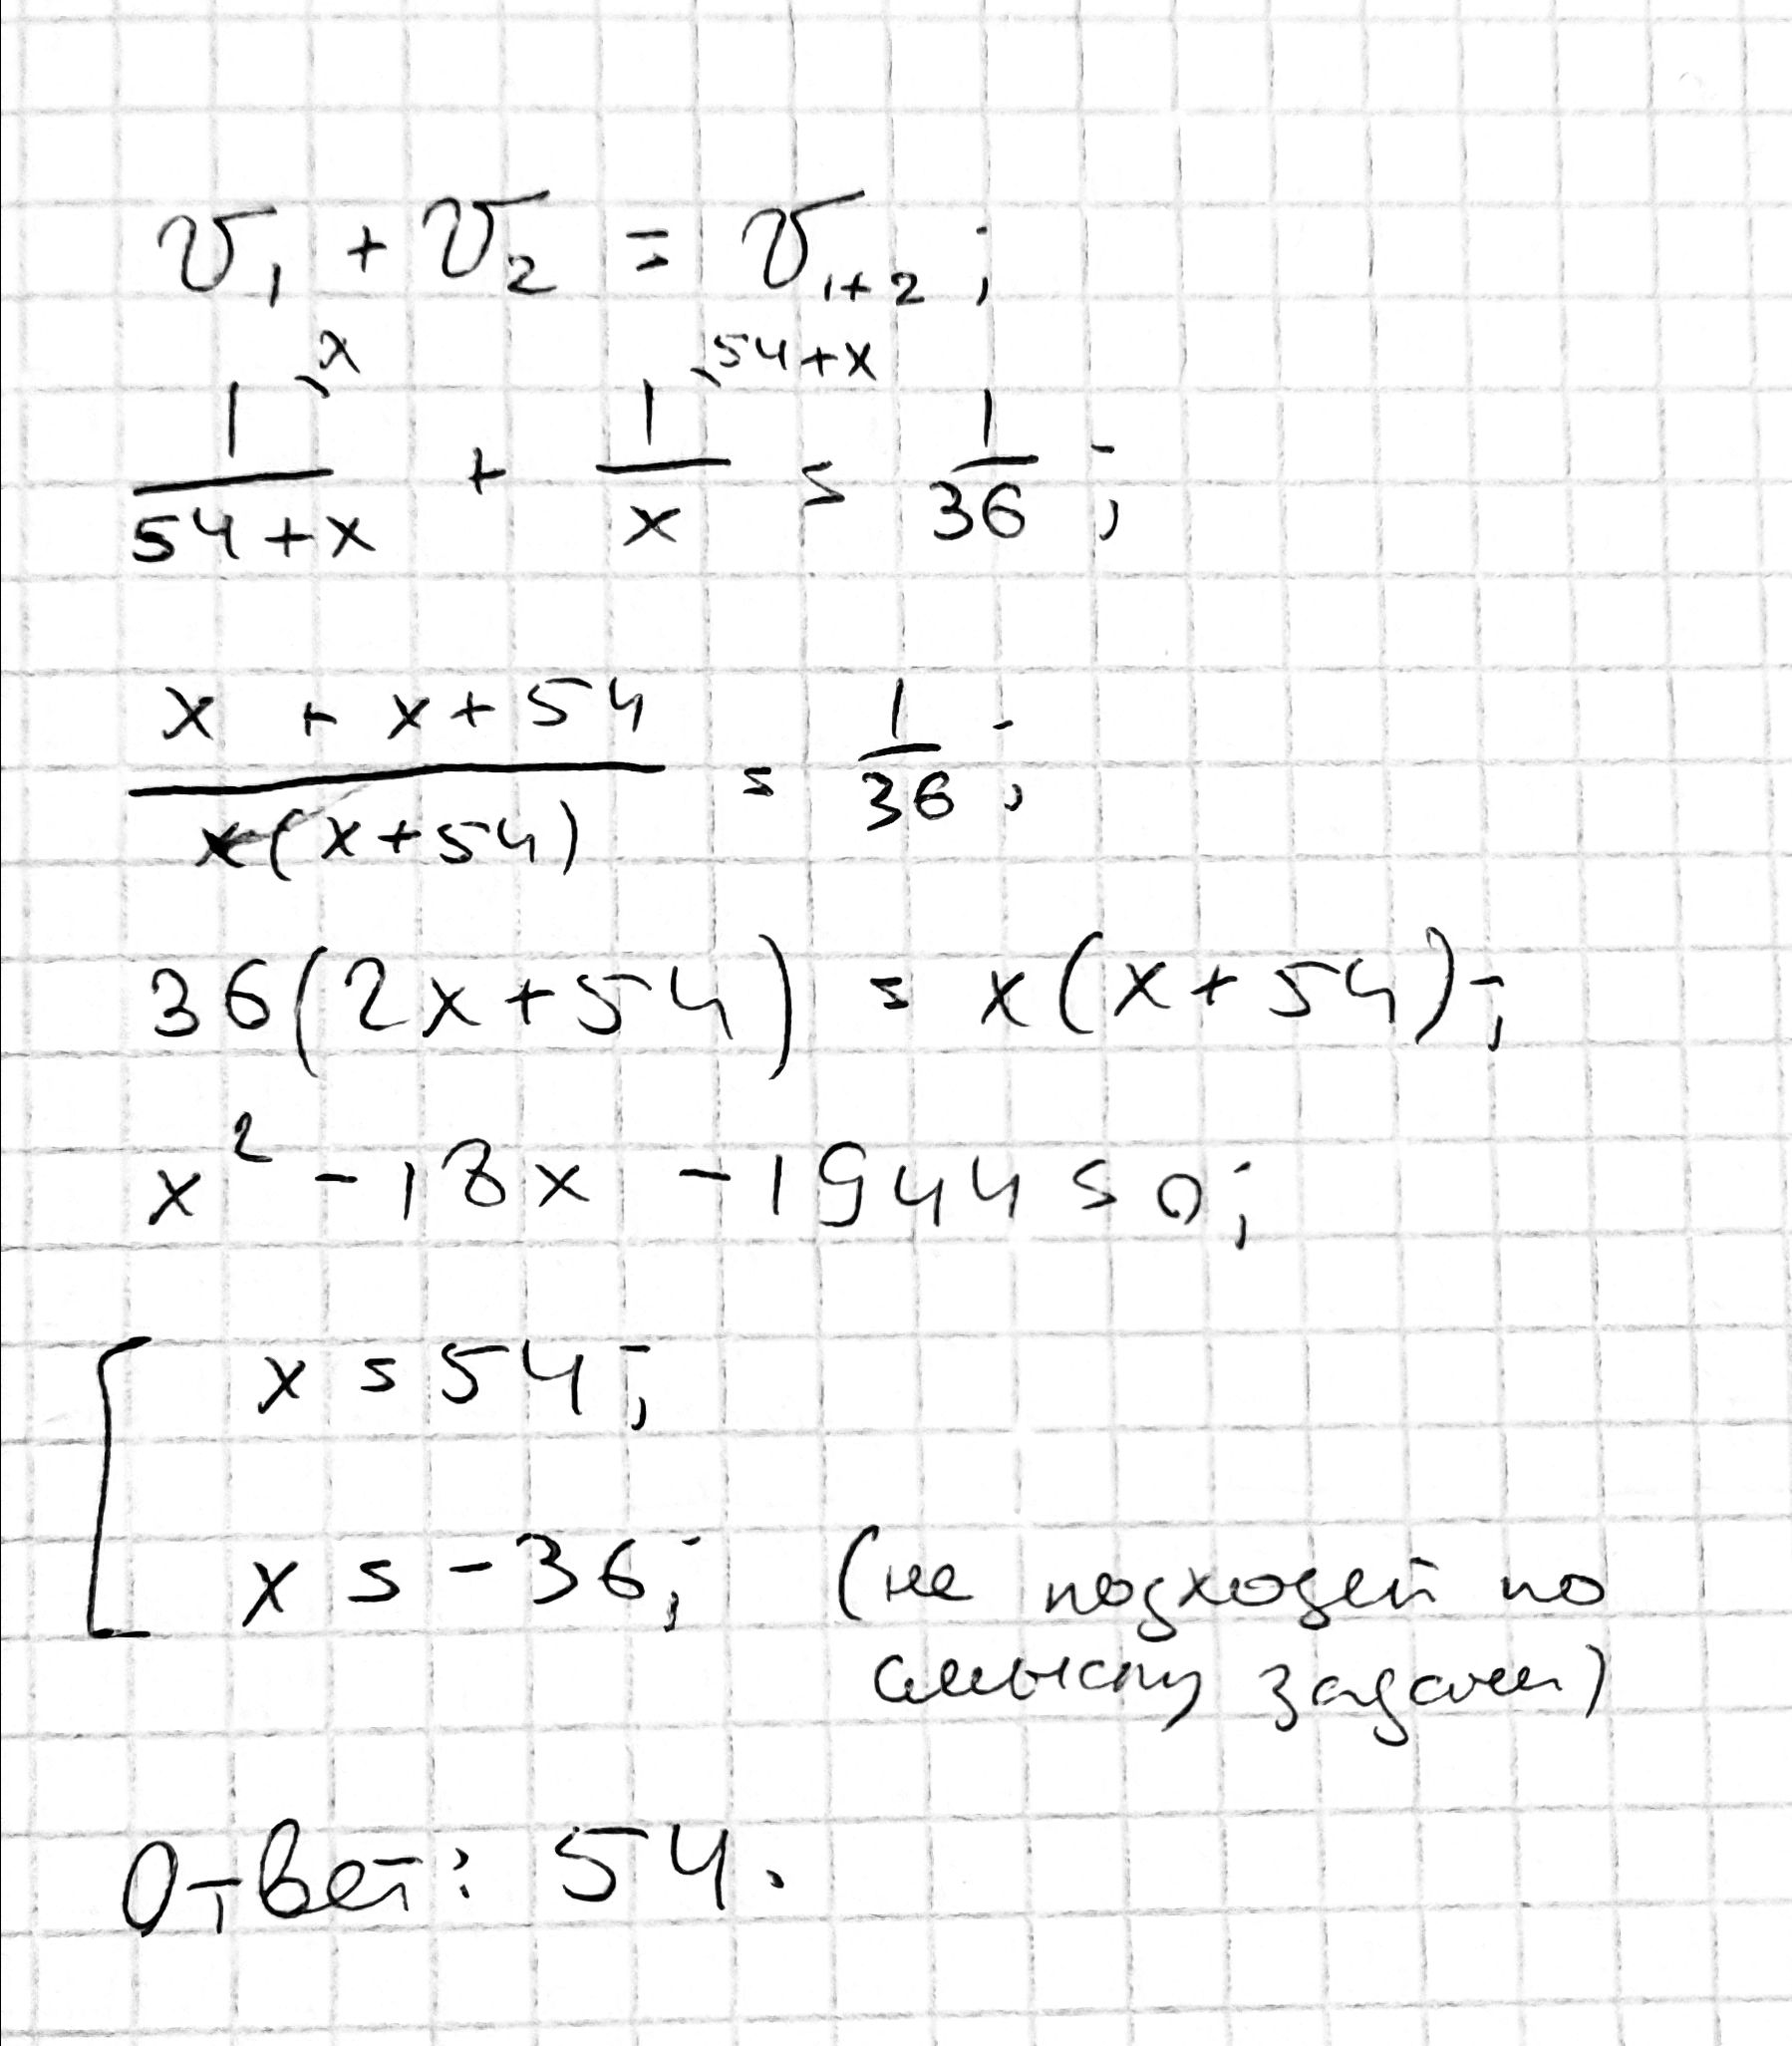 v₁ + v₂ = v₁₊₂ ;
1/(54+x) \x + 1/x \54+x = 1/36 ;
(x + x+54)/(x(x+54)) = 1/36 ;
36(2x+54) = x(x+54) ;
x² - 18x - 1944 = 0 ;
[ x = 54 ;
x = -36 ; (не подходит по
смыслу задачи)
Ответ: 54.